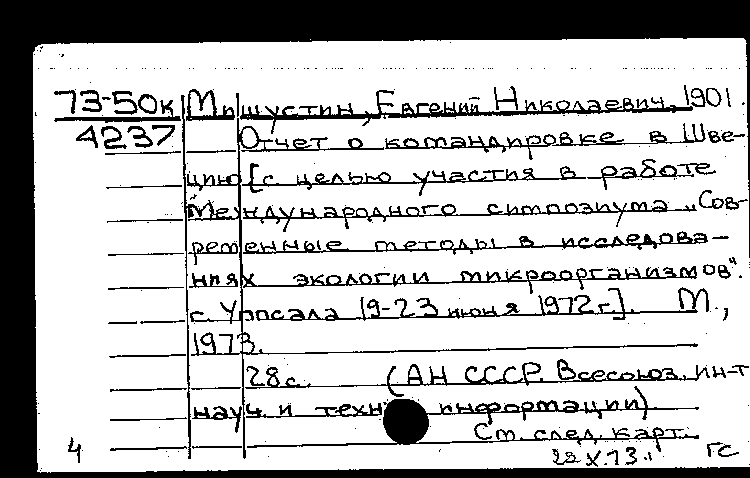 73-50к Мишустин, Евгений Николаевич, 1901.
4237 Отчет о командировке в Шве-
цию [с целью участия в работе
Международного симпозиума „Сов-
ременные методы в исследова-
ниях экологии микроорганизмов".
г. Уппсала 19-23 июня 1972 г.]. М.,
1973.
28 с. (АН СССР. Всесоюз. ин-т
науч. и техн информации)
См. след. карт.
4 X.73. ГС